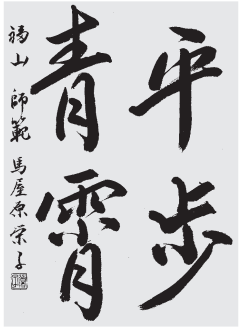 平歩
青霄
福山 師範 馬屋原栄子